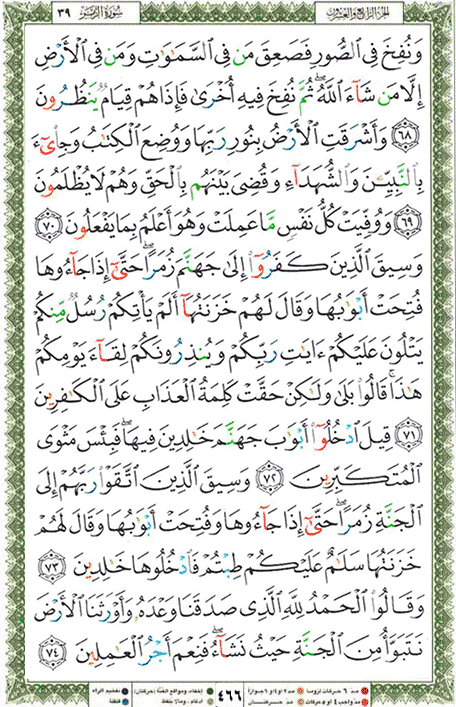 الجزء الرابع والعشرون سورة الزمر ٣٩
وَنُفِخَ فِي ٱلصُّورِ فَصَعِقَ مَن فِي ٱلسَّمَٰوَٰتِ وَمَن فِي ٱلْأَرْضِ
إِلَّا مَن شَآءَ ٱللَّهُ ۖ ثُمَّ نُفِخَ فِيهِ أُخْرَىٰ فَإِذَا هُمْ قِيَامٌ يَنظُرُونَ
٦٨ وَأَشْرَقَتِ ٱلْأَرْضُ بِنُورِ رَبِّهَا وَوُضِعَ ٱلْكِتَٰبُ وَجِا۟يٓءَ
بِٱلنَّبِيِّـۧنَ وَٱلشُّهَدَآءِ وَقُضِيَ بَيْنَهُم بِٱلْحَقِّ وَهُمْ لَا يُظْلَمُونَ
٦٩ وَوُفِّيَتْ كُلُّ نَفْسٍ مَّا عَمِلَتْ وَهُوَ أَعْلَمُ بِمَا يَفْعَلُونَ ٧٠
وَسِيقَ ٱلَّذِينَ كَفَرُوٓا۟ إِلَىٰ جَهَنَّمَ زُمَرًا ۖ حَتَّىٰٓ إِذَا جَآءُوهَا
فُتِحَتْ أَبْوَٰبُهَا وَقَالَ لَهُمْ خَزَنَتُهَآ أَلَمْ يَأْتِكُمْ رُسُلٌ مِّنكُمْ
يَتْلُونَ عَلَيْكُمْ ءَايَٰتِ رَبِّكُمْ وَيُنذِرُونَكُمْ لِقَآءَ يَوْمِكُمْ
هَٰذَا ۚ قَالُوا۟ بَلَىٰ وَلَٰكِنْ حَقَّتْ كَلِمَةُ ٱلْعَذَابِ عَلَى ٱلْكَٰفِرِينَ
٧١ قِيلَ ٱدْخُلُوٓا۟ أَبْوَٰبَ جَهَنَّمَ خَٰلِدِينَ فِيهَا ۖ فَبِئْسَ مَثْوَى
ٱلْمُتَكَبِّرِينَ ٧٢ وَسِيقَ ٱلَّذِينَ ٱتَّقَوْا۟ رَبَّهُمْ إِلَى
ٱلْجَنَّةِ زُمَرًا ۖ حَتَّىٰٓ إِذَا جَآءُوهَا وَفُتِحَتْ أَبْوَٰبُهَا وَقَالَ لَهُمْ
خَزَنَتُهَا سَلَٰمٌ عَلَيْكُمْ طِبْتُمْ فَٱدْخُلُوهَا خَٰلِدِينَ ٧٣
وَقَالُوا۟ ٱلْحَمْدُ لِلَّهِ ٱلَّذِي صَدَقَنَا وَعْدَهُۥ وَأَوْرَثَنَا ٱلْأَرْضَ
نَتَبَوَّأُ مِنَ ٱلْجَنَّةِ حَيْثُ نَشَآءُ ۖ فَنِعْمَ أَجْرُ ٱلْعَٰمِلِينَ ٧٤
٤٦٦